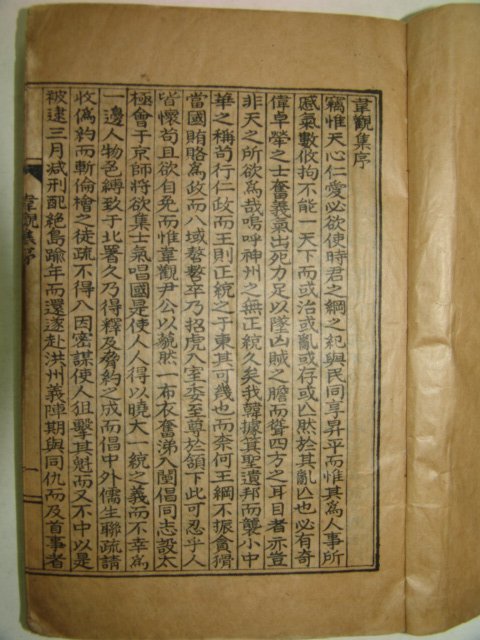 韋觀集序
竊惟天心仁愛必欲使時君之綱之紀與民同享昇平而惟其為人事所
戚氣數攸拘不能一天下而或治或亂或存或亾然於其亂亾也必有奇
偉卓犖之士奮義氣出死力足以墜凶賊之膽而聳四方之耳目者亦豈
非天之所欲為哉嗚呼神州之無正統久矣我韓據箕聖遺邦而襲小中
華之稱苟行仁政而王則正統之于東其可幾也而柰何王綱不振貪猾
當國賄賂為政而八域嗸嗸卒乃招虎入室委至尊於頷下此可忍乎人
皆懷苟且欲自免而惟韋觀尹公以藐然一布衣奮涕入閩倡同志設太
極會于京師將欲集士氣唱國是使人人得以曉大一統之義而不幸為
一邊人物色縛致于北署久乃得釋及脅約之成而倡中外儒生聯疏請
收僞約而斬倫檜之徒疏不得入因密謀使人狙擊其魁而又不中以是
被逮三月减刑配絶島踰年而還遂赴洪州義陣期與同仇而及首事者
韋觀集序
一